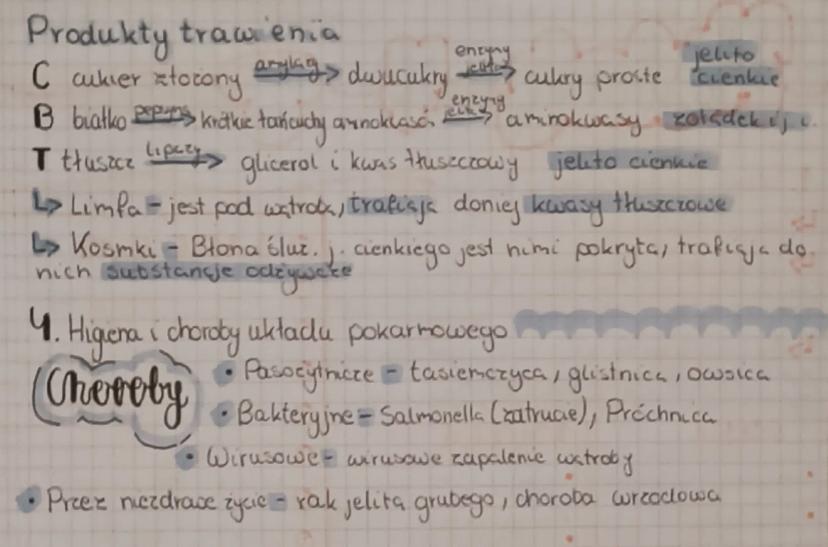 Produkty trawienia
C cukier złożony amylaza dwucukry enzymy jelitowe cukry proste jelito cienkie
B białko pepsyna krótkie łańcuchy aminokwasów enzymy aminokwasy żołądek i j. c.
T tłuszcz lipazy glicerol i kwas tłuszczowy jelito cienkie
↳ Limfa - jest pod wątrobą, trafiają do niej kwasy tłuszczowe
↳ Kosmki - Błona śluz. j. cienkiego jest nimi pokryta, trafiają do
nich substancje odżywcze
4. Higiena i choroby układu pokarmowego
Choroby
• Pasożytnicze - tasiemczyca, glistnica, owsica
• Bakteryjne - Salmonella (zatrucie), Próchnica
• Wirusowe - wirusowe zapalenie wątroby
• Przez niezdrowe życie - rak jelita grubego, choroba wrzodowa